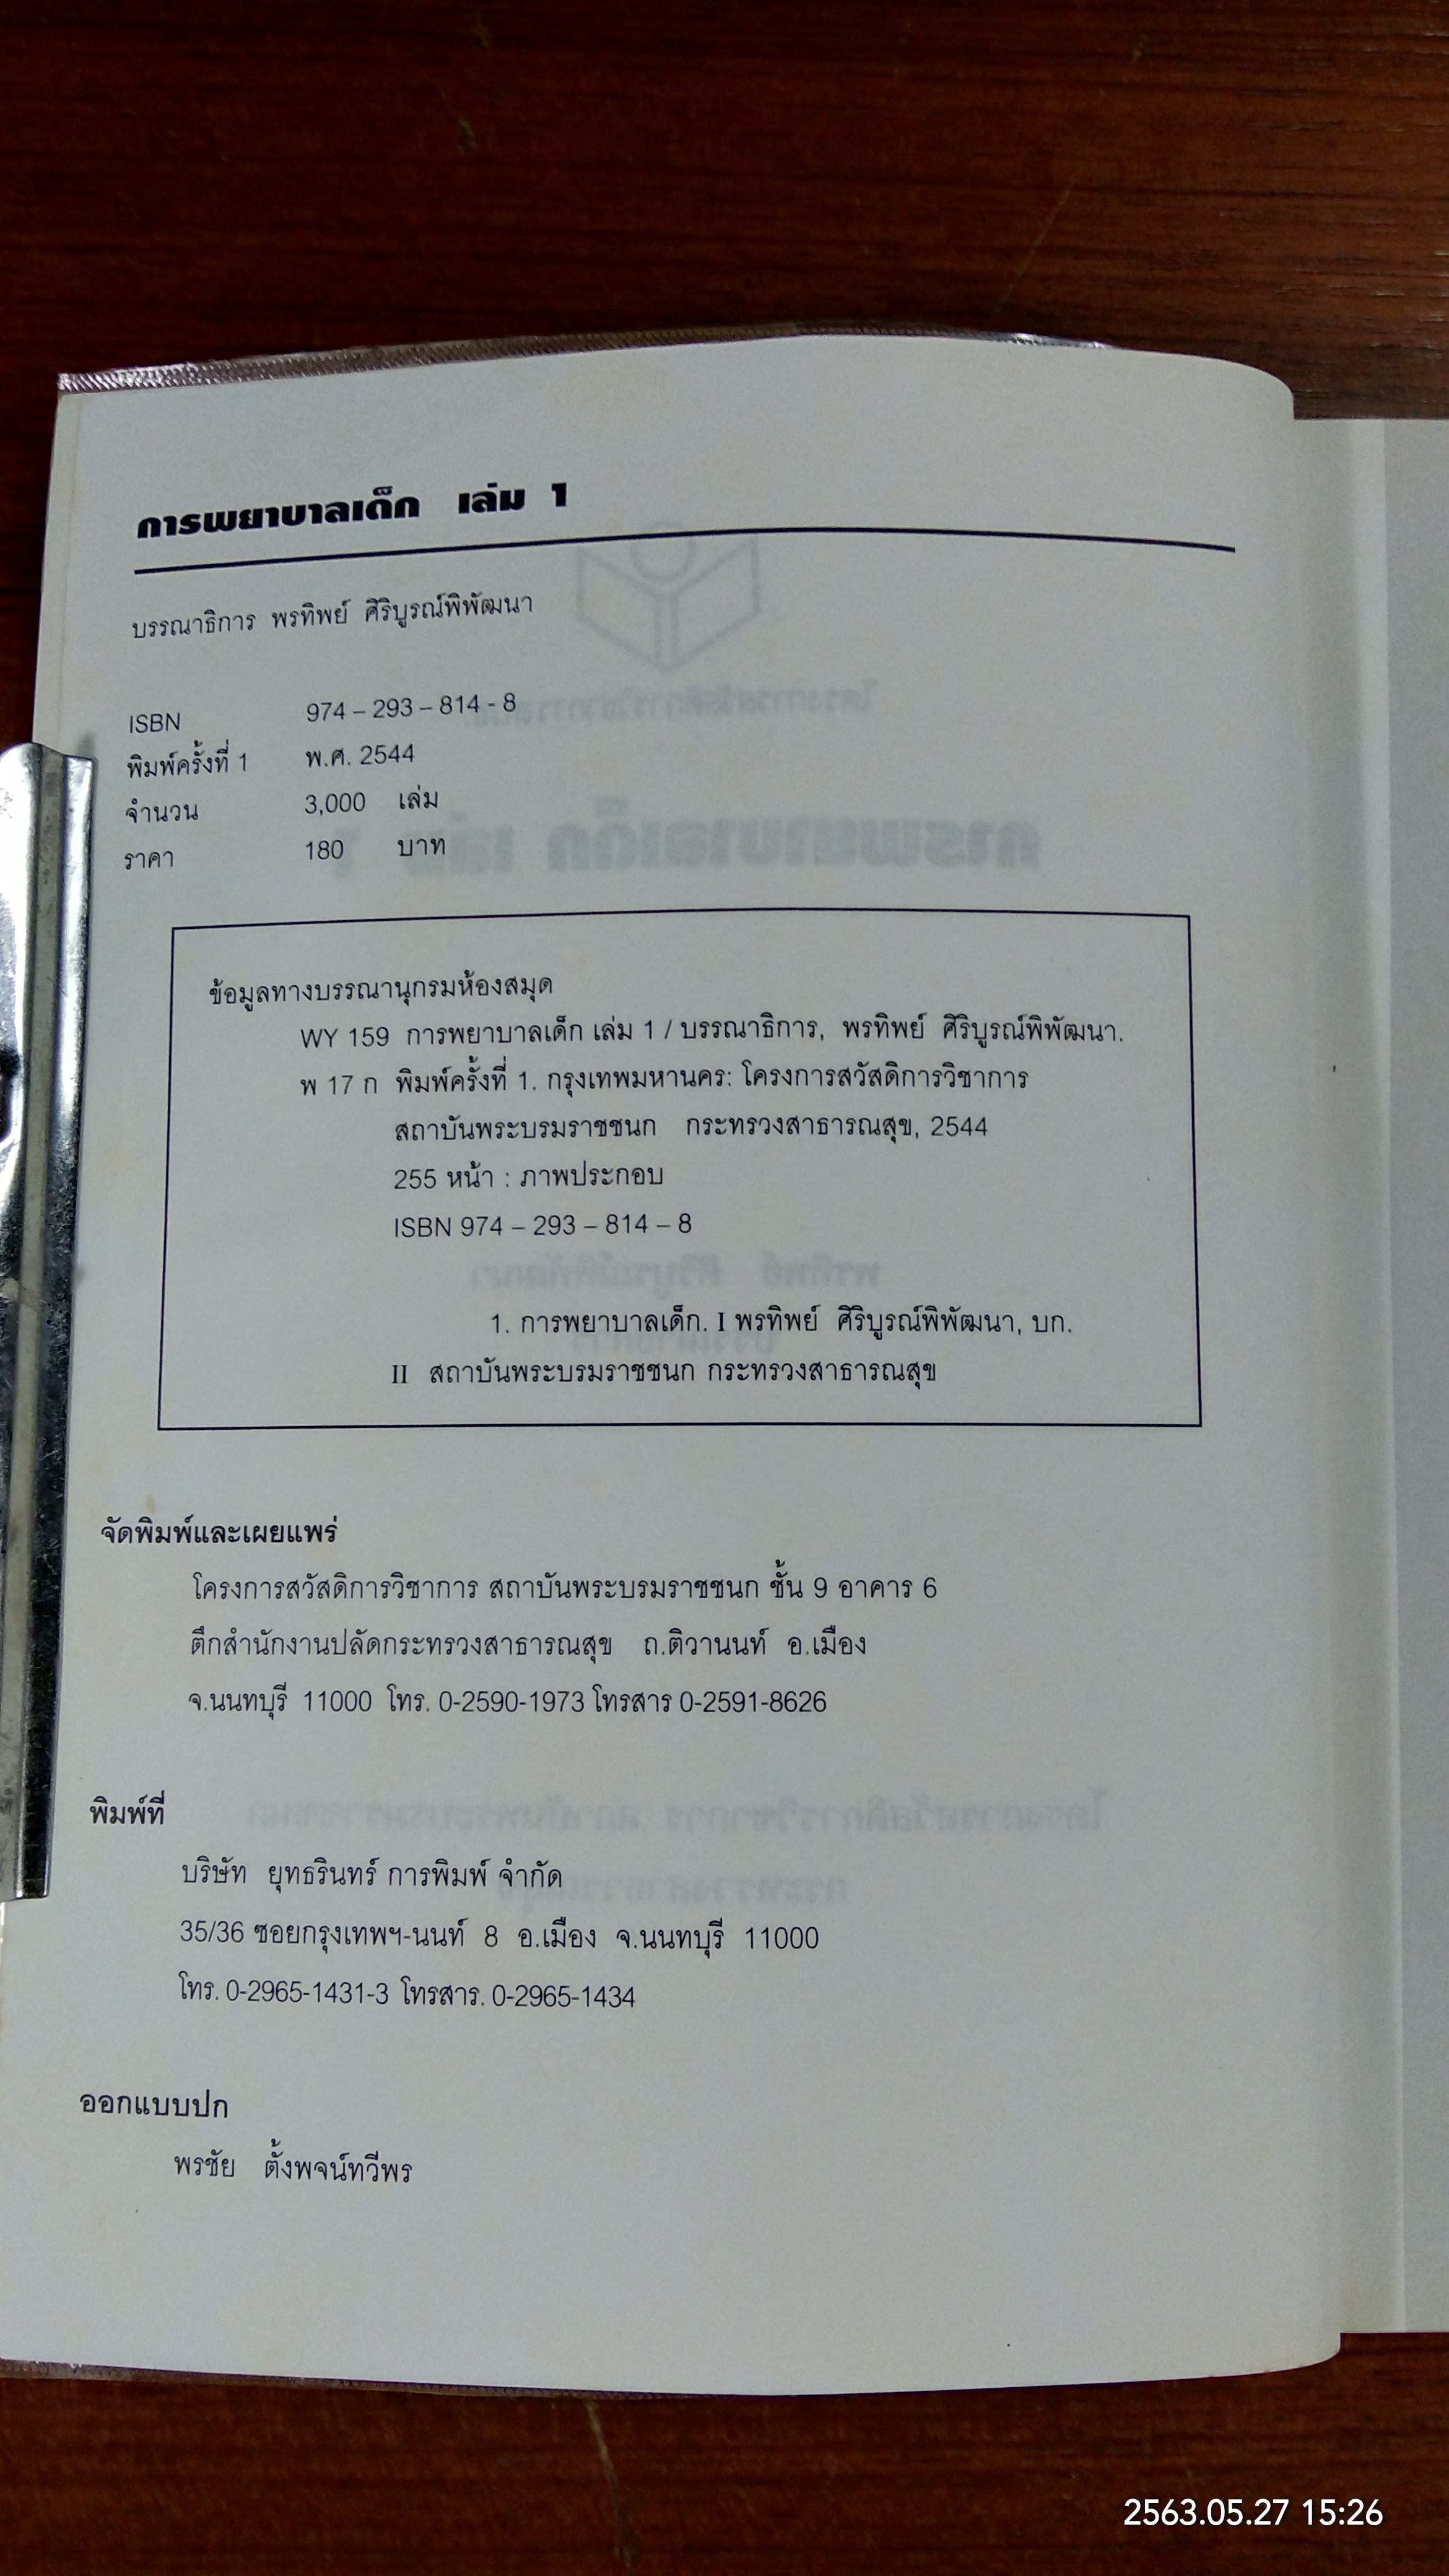 การพยาบาลเด็ก เล่ม 1
บรรณาธิการ พรทิพย์ ศิริบูรณ์พิพัฒนา
ISBN 974 – 293 – 814 - 8
พิมพ์ครั้งที่ 1 พ.ศ. 2544
จำนวน 3,000 เล่ม
ราคา 180 บาท
ข้อมูลทางบรรณานุกรมห้องสมุด
WY 159 การพยาบาลเด็ก เล่ม 1 / บรรณาธิการ, พรทิพย์ ศิริบูรณ์พิพัฒนา.
พ 17 ก พิมพ์ครั้งที่ 1. กรุงเทพมหานคร: โครงการสวัสดิการวิชาการ
สถาบันพระบรมราชชนก กระทรวงสาธารณสุข, 2544
255 หน้า : ภาพประกอบ
ISBN 974 – 293 – 814 – 8
1. การพยาบาลเด็ก. I พรทิพย์ ศิริบูรณ์พิพัฒนา, บก.
II สถาบันพระบรมราชชนก กระทรวงสาธารณสุข
จัดพิมพ์และเผยแพร่
โครงการสวัสดิการวิชาการ สถาบันพระบรมราชชนก ชั้น 9 อาคาร 6
ตึกสำนักงานปลัดกระทรวงสาธารณสุข ถ.ติวานนท์ อ.เมือง
จ.นนทบุรี 11000 โทร. 0-2590-1973 โทรสาร 0-2591-8626
พิมพ์ที่
บริษัท ยุทธรินทร์ การพิมพ์ จำกัด
35/36 ซอยกรุงเทพฯ-นนท์ 8 อ.เมือง จ.นนทบุรี 11000
โทร. 0-2965-1431-3 โทรสาร. 0-2965-1434
ออกแบบปก
พรชัย ตั้งพจน์ทวีพร
2563.05.27 15:26